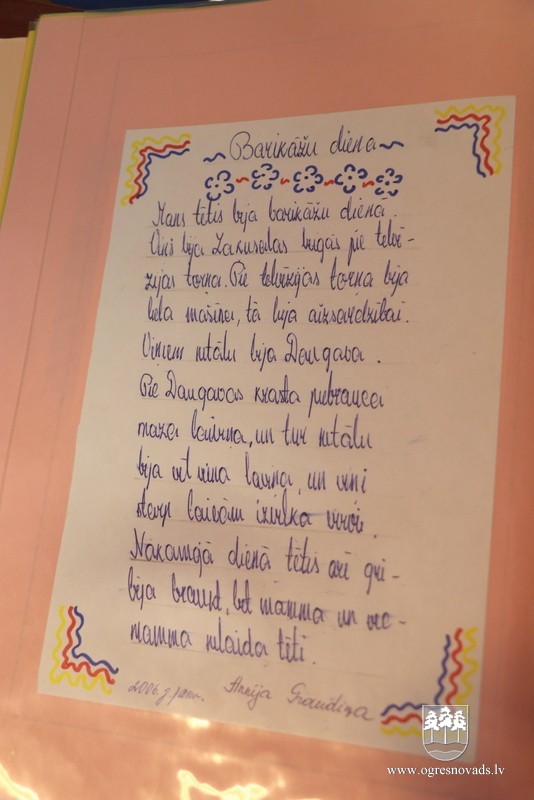 ~ Barikāžu diena ~
Mans tētis bija barikāžu dienā.
Viņš bija Zaķusalas brigās pie televī-
zijas torņa. Pie televīzijas torņa bija
liela mašīna, tā bija aizsardzībai.
Viņiem netālu bija Daugava.
Pie Daugavas krasta piebrauca
maza laiviņa, un tur netālu
bija vēl viena laiviņa, un viņi
starp laivām izvilka virvi.
Nākamajā dienā tētis arī gri-
bēja braukt, bet mamma un vec-
mamma nelaida tēti.
2006. g. janv. Annija Graudiņa
www.ogresnovads.lv